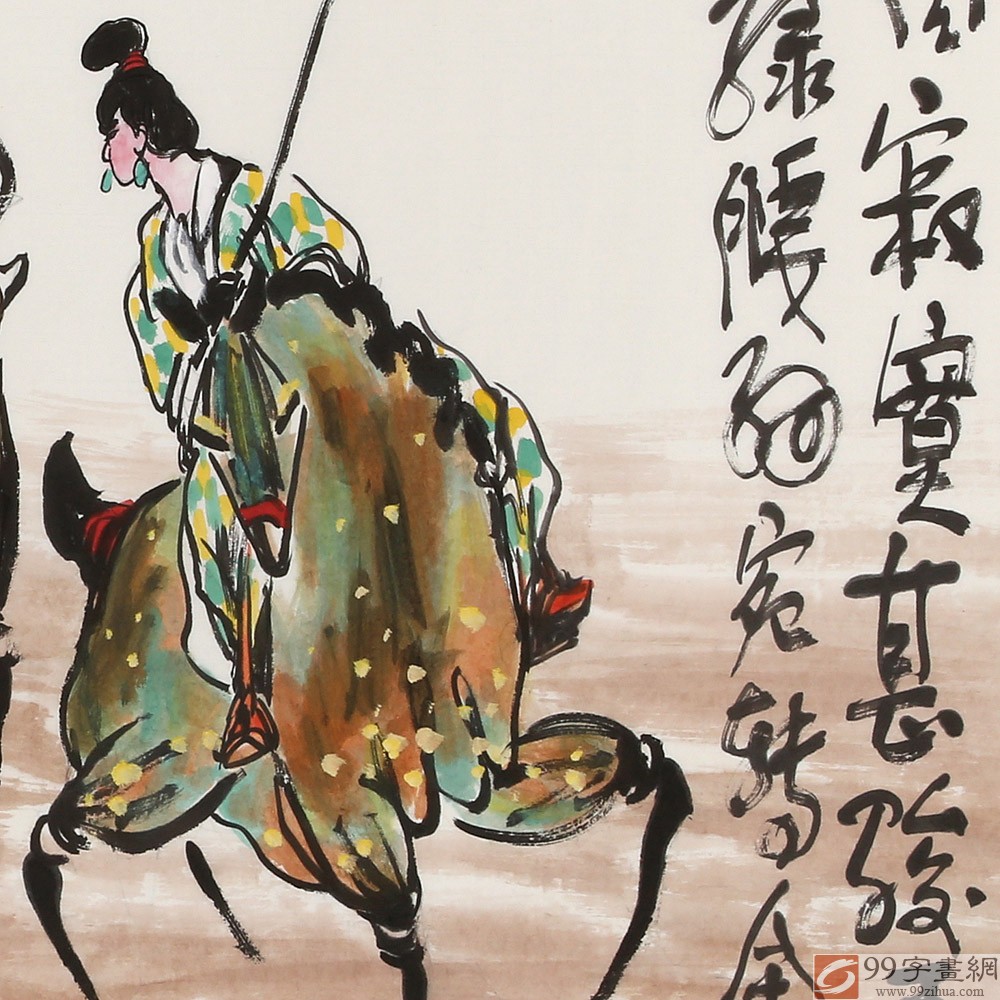 寂寞甚骏
绿腰的宛转
99字畫網
www.99zihua.com